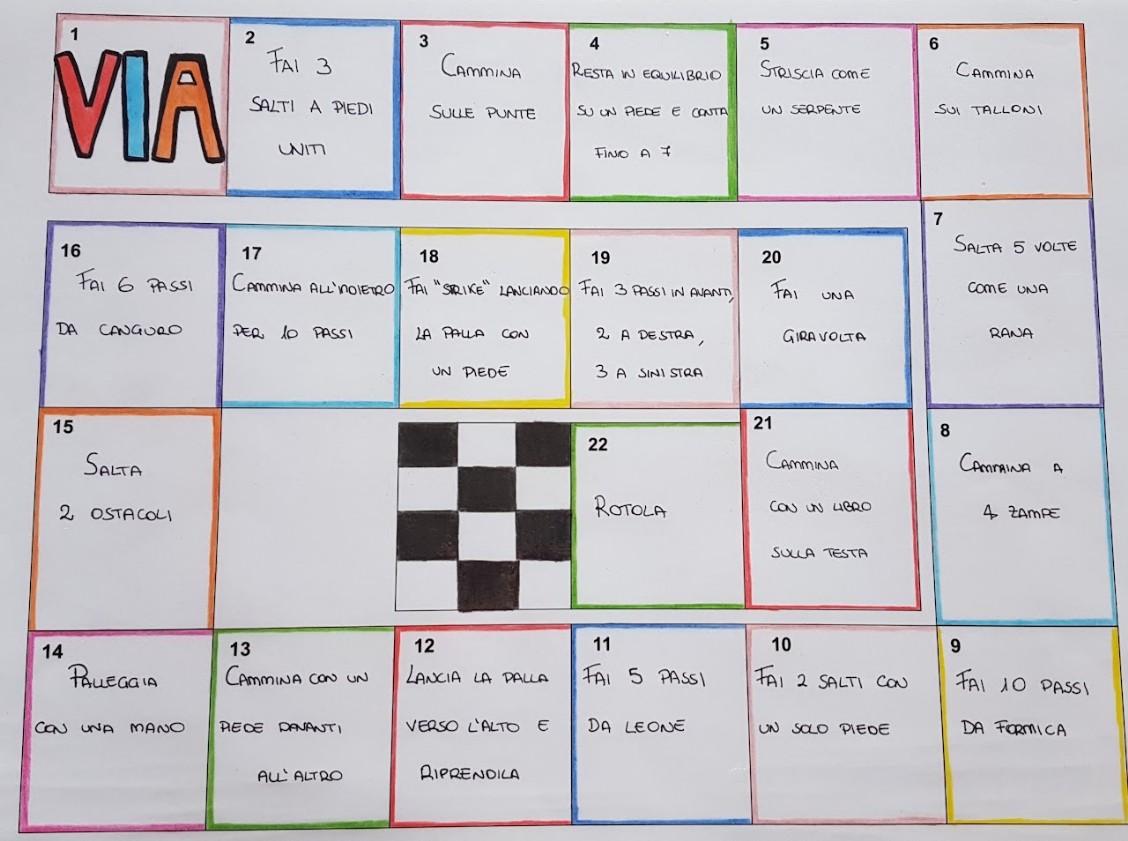 1
VIA
2
FAI 3
SALTI A PIEDI
UNITI
3
CAMMINA
SULLE PUNTE
4
RESTA IN EQUILIBRIO
SU UN PIEDE E CONTA
FINO A 7
5
STRISCIA COME
UN SERPENTE
6
CAMMINA
SUI TALLONI
7
SALTA 5 VOLTE
COME UNA
RANA
8
CAMMINA A
4 ZAMPE
9
FAI 10 PASSI
DA FORMICA
10
FAI 2 SALTI CON
UN SOLO PIEDE
11
FAI 5 PASSI
DA LEONE
12
LANCIA LA PALLA
VERSO L'ALTO E
RIPRENDILA
13
CAMMINA CON UN
PIEDE DAVANTI
ALL'ALTRO
14
PALLEGGIA
CON UNA MANO
15
SALTA
2 OSTACOLI
16
FAI 6 PASSI
DA CANGURO
17
CAMMINA ALL'INDIETRO
PER 10 PASSI
18
FAI "STRIKE" LANCIANDO
LA PALLA CON
UN PIEDE
19
FAI 3 PASSI IN AVANTI,
2 A DESTRA,
3 A SINISTRA
20
FAI UNA
GIRAVOLTA
21
CAMMINA
CON UN LIBRO
SULLA TESTA
22
ROTOLA